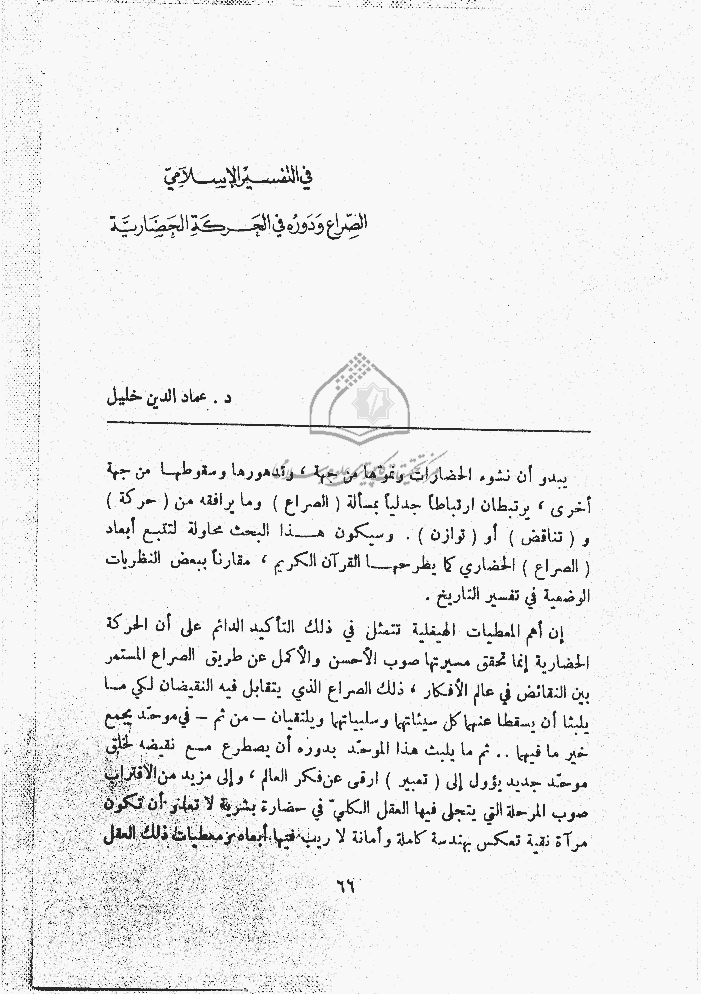 في التفسير الإسلامي
الصراع ودوره في الحركة الحضارية
د . عماد الدين خليل
يبدو أن نشوء الحضارات ونموها من جهة ، وتدهورها وسقوطهـا من جهة
أخرى ، يرتبطان ارتباطاً جدلياً بمسألة ( الصراع ) وما يرافقه من ( حركة )
و ( تناقض ) أو ( توازن ) . وسيكون هـــذا البحث محاولة لتتبع أبعاد
( الصراع ) الحضاري كما يطرحهـــا القرآن الكريم ، مقارناً ببعض النظريات
الوضعية في تفسير التاريخ .
إن أهم المعطيات الهيغلية تتمثل في ذلك التأكيد الدائم على أن الحركة
الحضارية إنما تحقق مسيرتها صوب الأحسن والأكمل عن طريق الصراع المستمر
بين النقائض في عالم الأفكار ، ذلك الصراع الذي يتقابل فيه النقيضان لكي مــا
يلبثا أن يسقطا عنهما كل سيئاتها وسلبياتها ويلتقيان – من ثم – في موحّد يجمع
خير ما فيهما .. ثم ما يلبث هذا الموحّد بدوره أن يصطرع مــع نقيضه لخلق
موحّد جديد يؤول إلى ( تعبير ) ارقى عن فكر العالم ، وإلى مزيد من الاقتراب
صوب المرحلة التي يتجلى فيها العقل الكليّ في حضارة بشرية لا تعدو أن تكون
مرآة نقية تعكس بهندسة كاملة وأمانة لا ريب فيها أبعاد ومعطيات ذلك العقل
٦٦